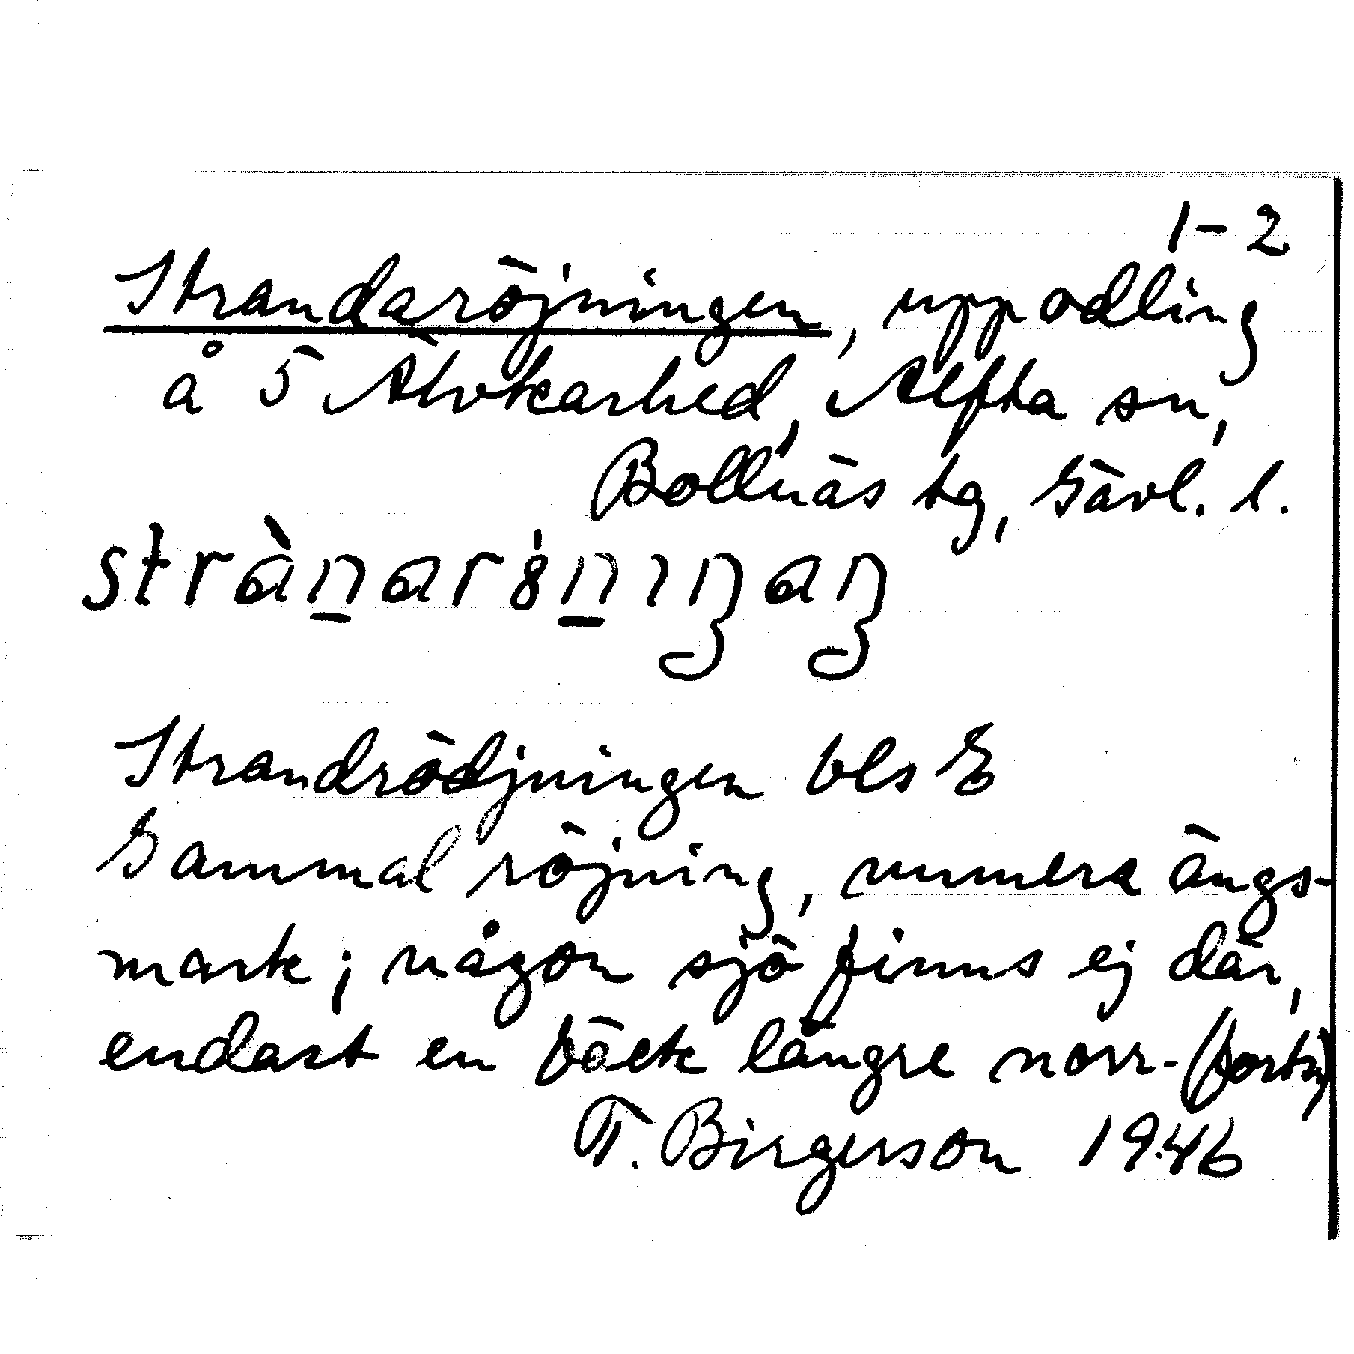 1-2
Strandaröjningen, uppodling
å 5 Älvkarhed, Alfta sn,
Bollnäs tg, Gävl. l.
Strandrödjningen bls E
Gammal röjning, numera ängs-
mark; någon sjö finns ej där,
endast en bäck längre norr- (forts)
T. Birgerson 1946